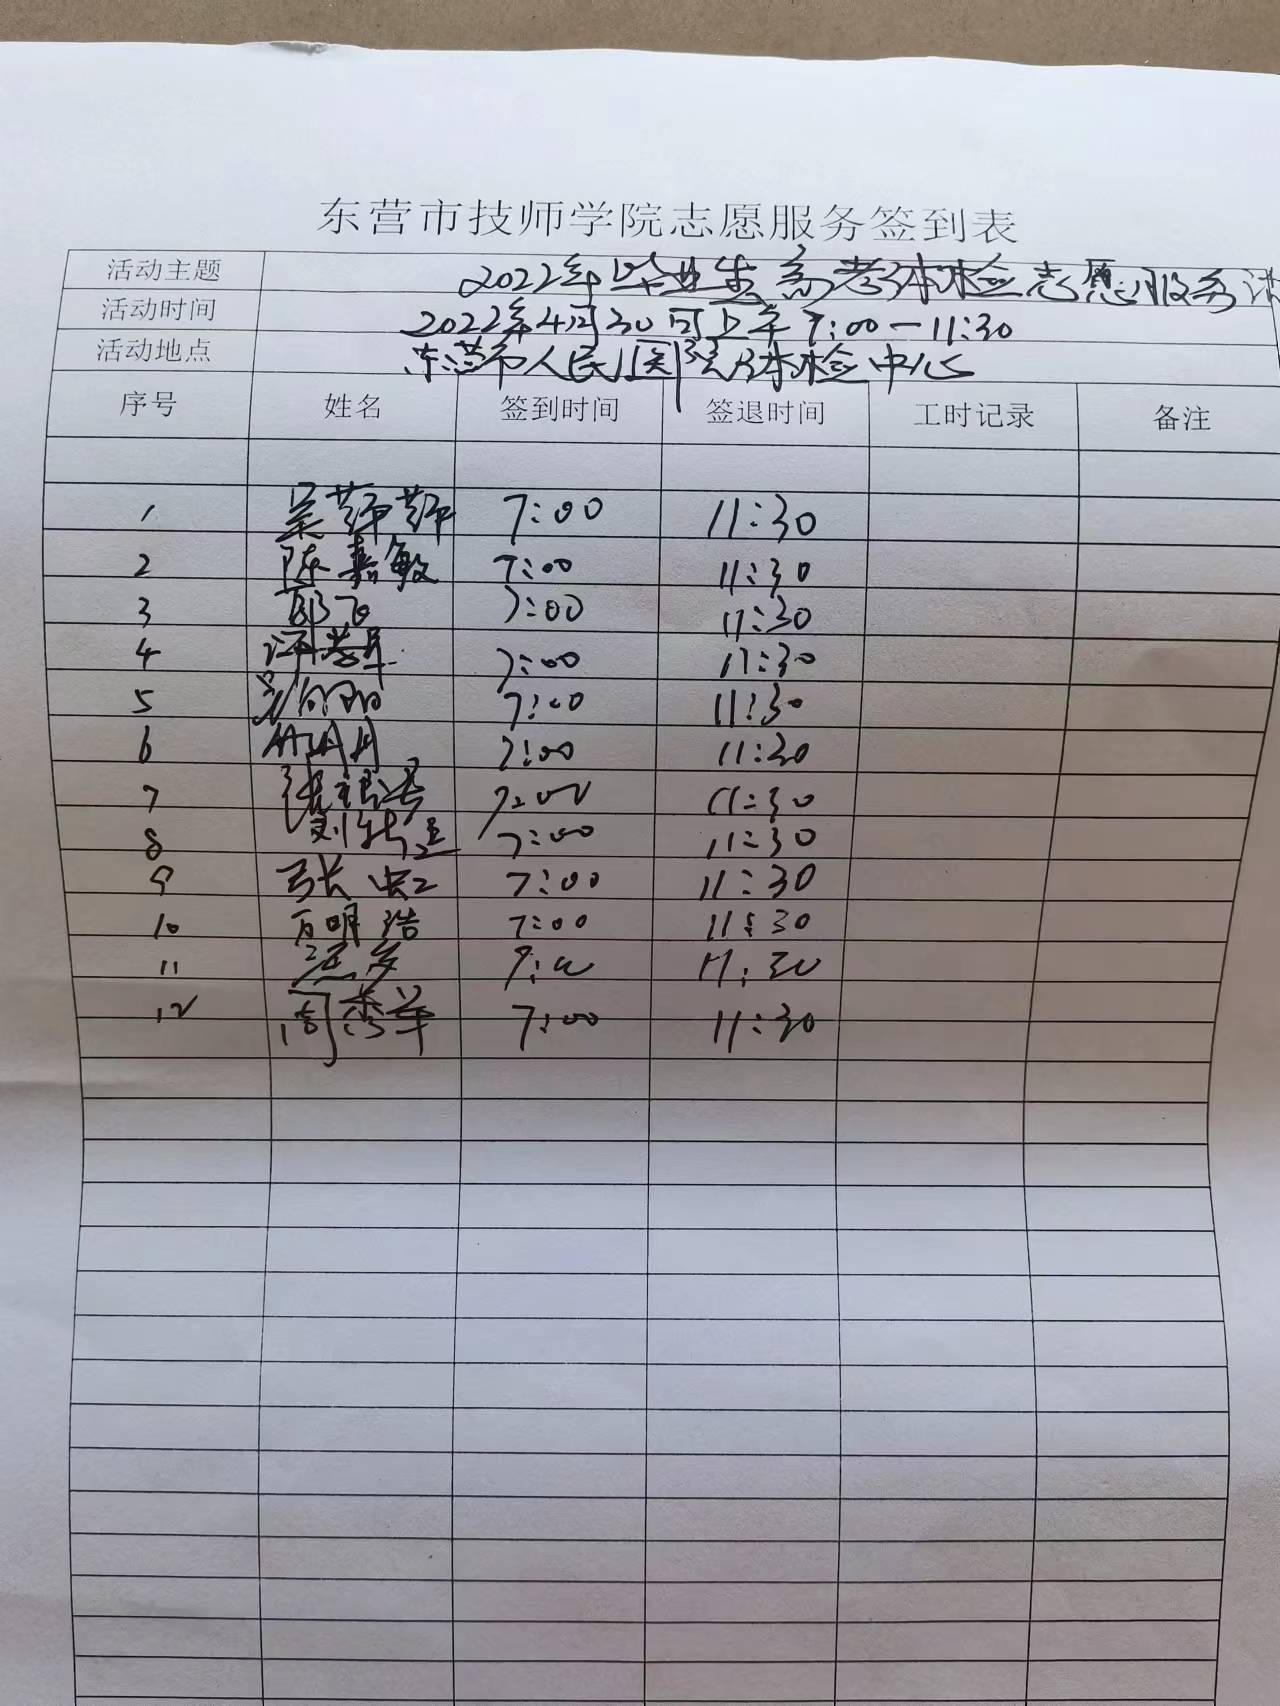 东营市技师学院志愿服务签到表
活动主题 2022年毕业生高考体检志愿服务活
活动时间 2022年4月30日上午7:00—11:30
活动地点 东营市人民医院体检中心
序号 姓名 签到时间 签退时间 工时记录 备注
1 吴荦荦 7:00 11:30
2 陈嘉敏 7:00 11:30
3 7:00 11:30
4 7:00 11:30
5 7:00 11:30
6 7:00 11:30
7 7:00 11:30
8 7:00 11:30
9 张 7:00 11:30
10 万明浩 7:00 11:30
11 11:30
12 周秀华 7:00 11:30